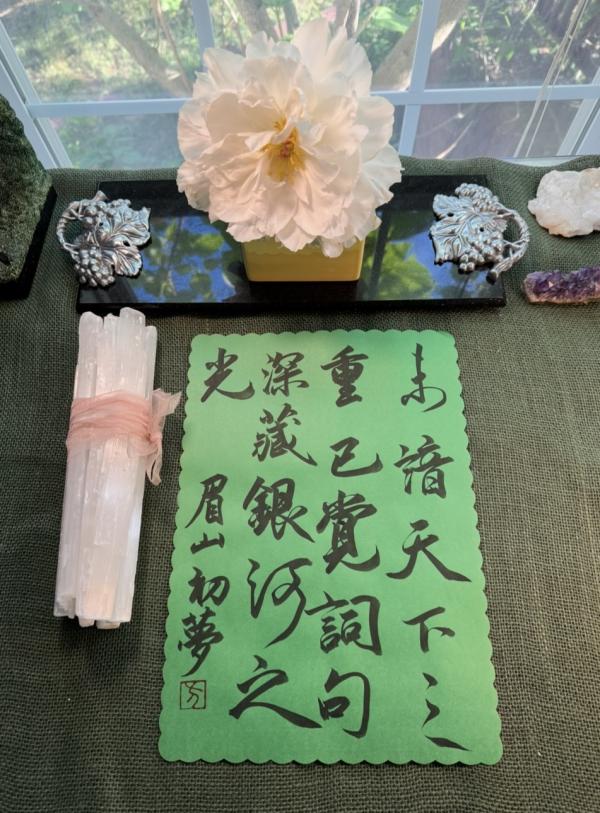 未諳天下之
重已覺詞句
深藏銀河之
光
眉山初夢